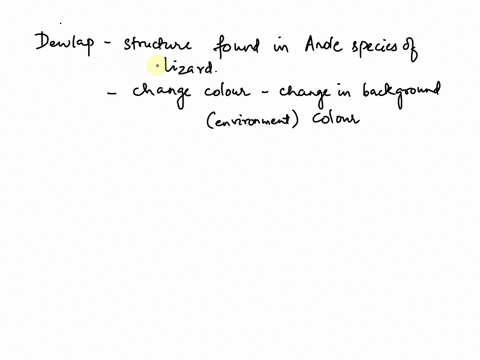 Dewlap - structure found in Anole species of
lizard.
- change colour - change in background
(environment) colour